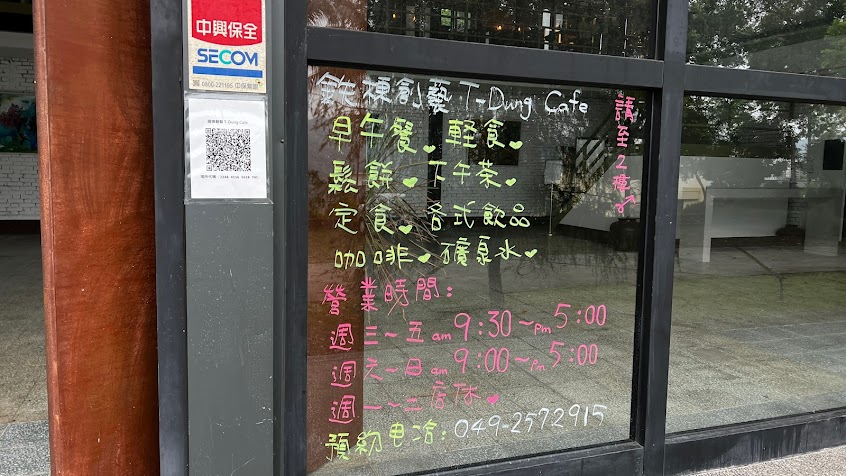 中興保全
SECOM
0800-221195 中保集團
T-Dung Cafe
鈍棟創藝 T-Dung Cafe
早午餐 輕食
鬆餅 下午茶
定食 各式飲品
咖啡 礦泉水
請至2樓
營業時間:
週三~五 am 9:30~pm 5:00
週六~日 am 9:00~pm 5:00
週一~二店休
預約電洽: 049-2572915